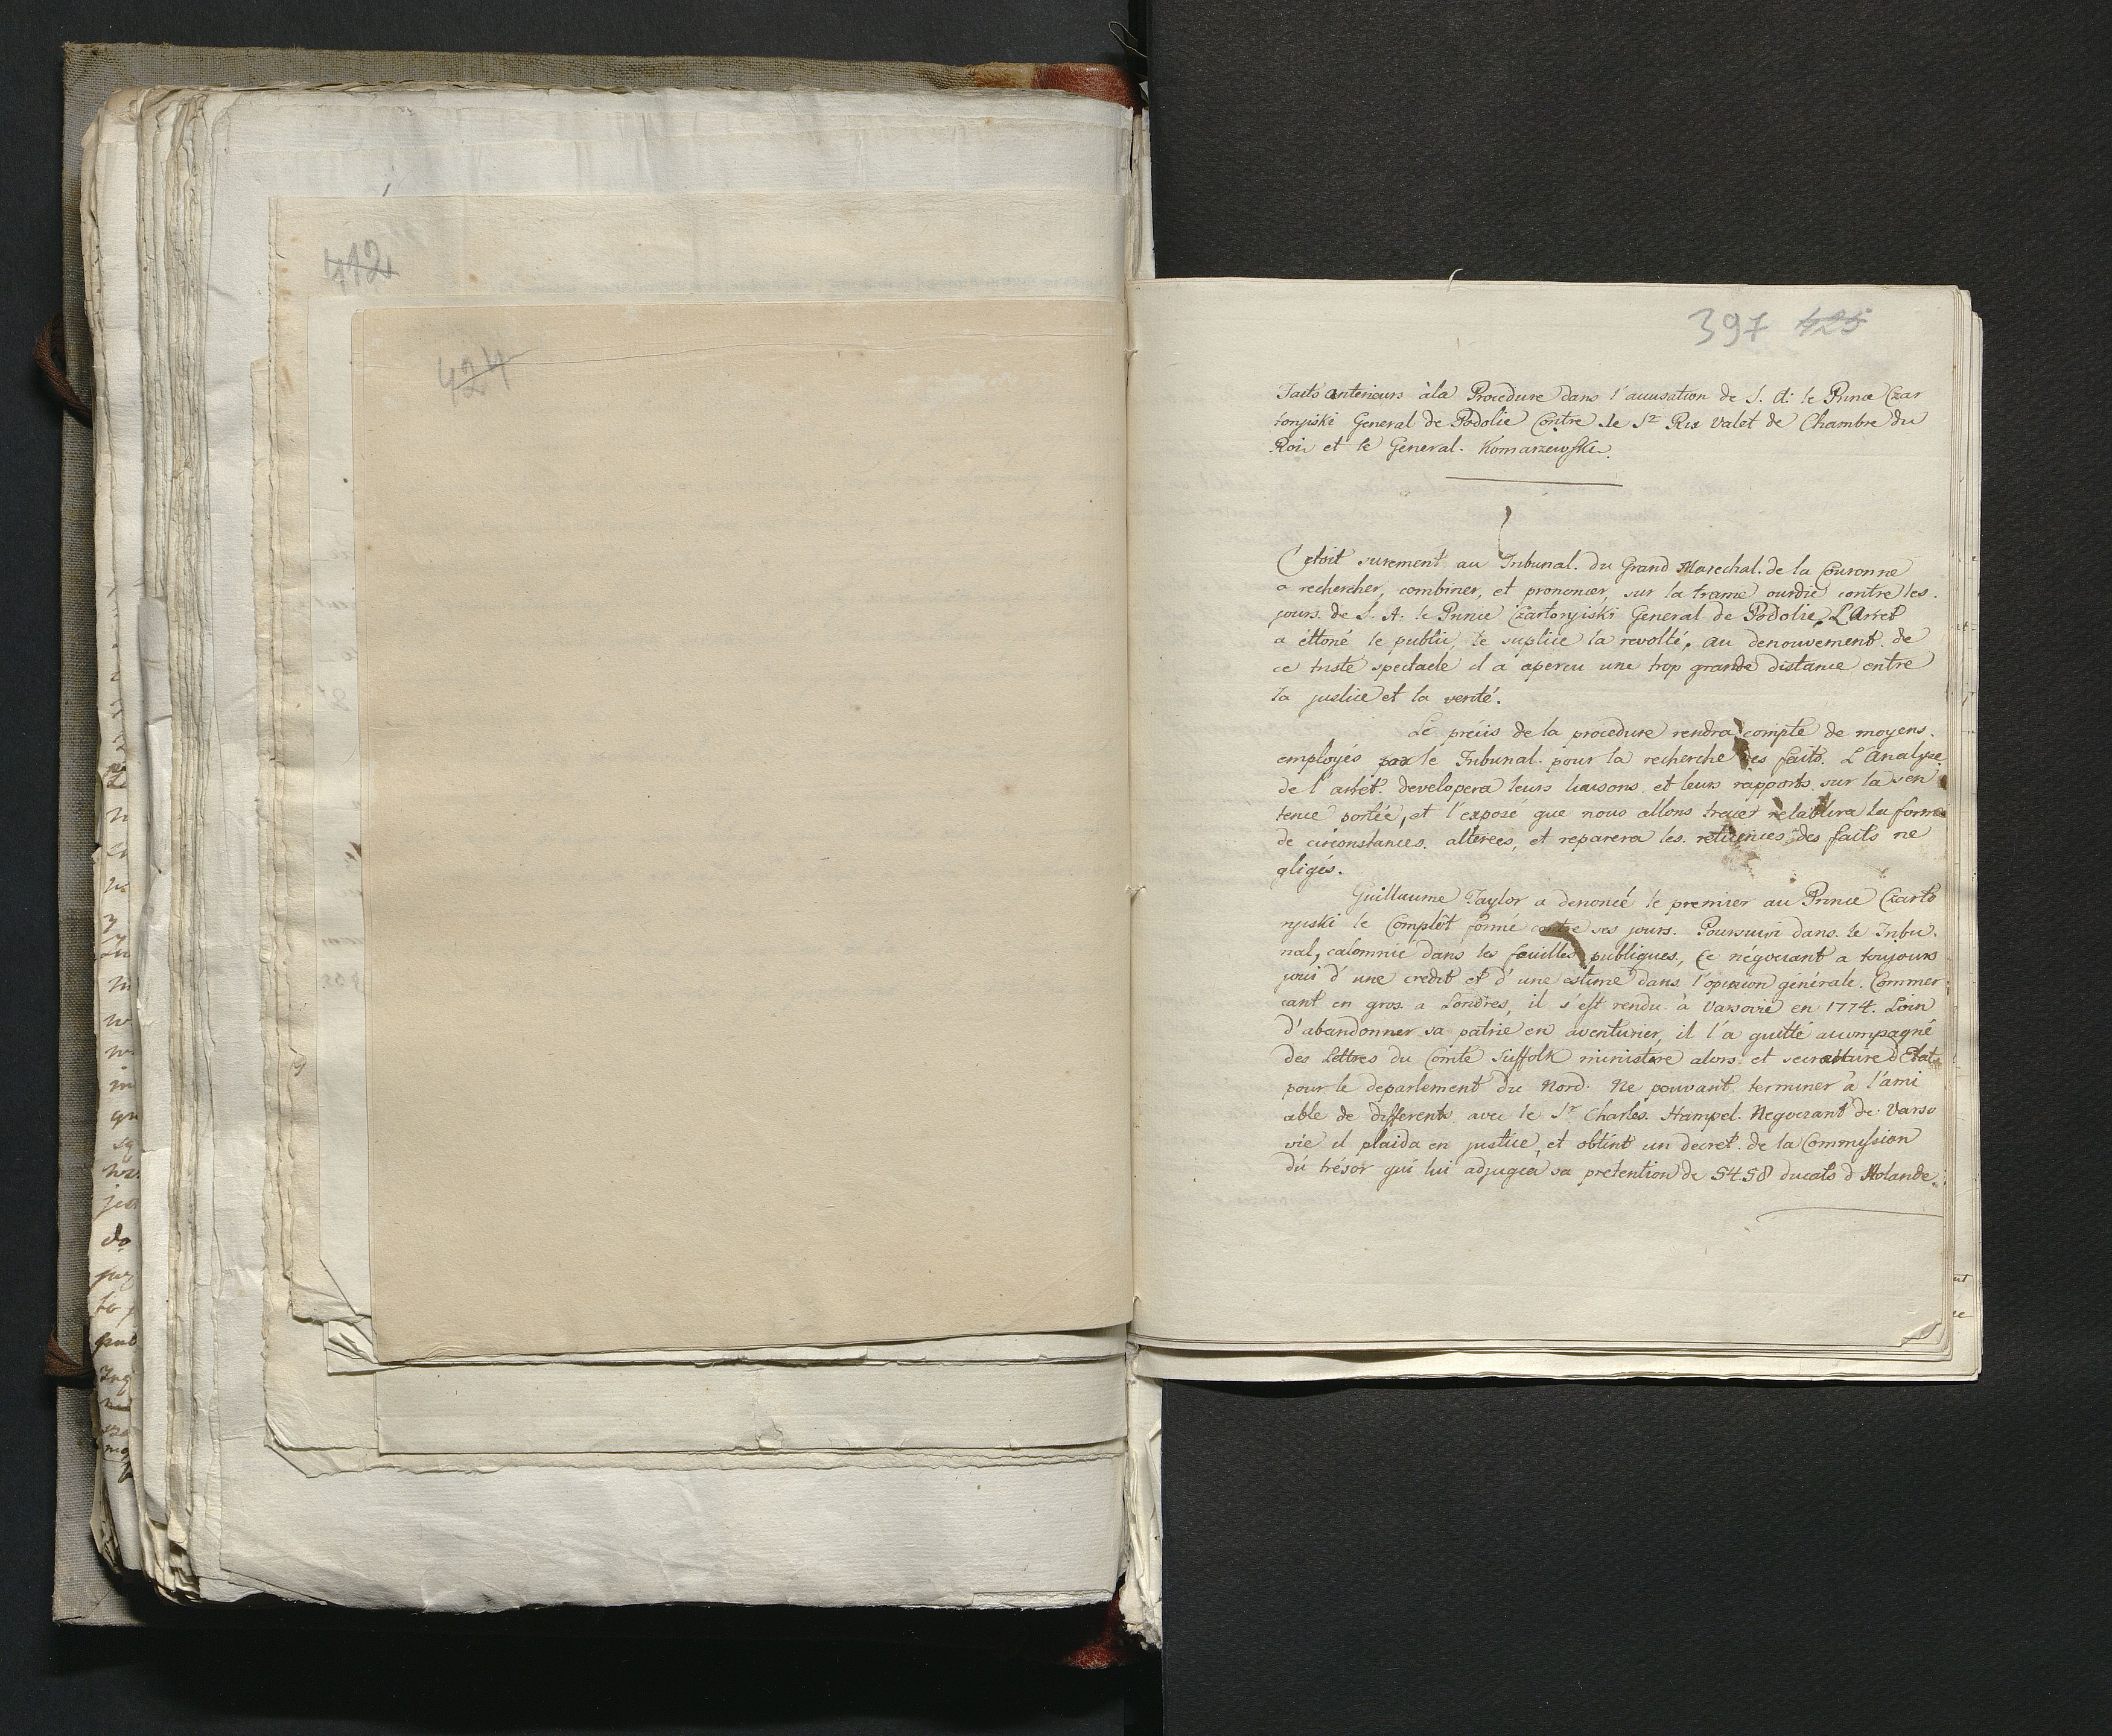 412
424
397 425
Faits antérieurs àla Procedure dans l'accusation de S. A. le Prince Czar
toryiski General de Podolie Contre le Sr Rix Valet de Chambre du
Roi et le General Komarzewski.
C'etoit surement au Tribunal du Grand Marechal de la Couronne
a rechercher, combiner, et prononcer, sur la trame ourdie contre les
jours de S. A. le Prince Czartoryiski General de Podolie, L'Arret
a éttoné le public, le suplice la revolté, au denouvement de
ce triste spectacle il a apercu une trop grande distance entre
la justice et la verité.
Le précis de la procedure rendra compte de moyens
employés par le Tribunal pour la recherche des faits. L'Analyse
de l'arrét developera leurs liaisons et leurs rapports sur la sen
tence portée, et l'exposé que nous allons tracer retablira la forme
de circonstances alterées, et reparera les reticences des faits ne
gligés.
Guillaume Taylor a denoncé le premier au Prince Czarto
ryiski le Complêt formé contre ses jours. Poursuivi dans le Tribu
nal, calomnie dans les feuilles publiques, Ce négociant a toujours
joui d'une credit et d'une estime dans l'opinion générale. Commer
cant en gros a Londres, il s'est rendu à Varsovie en 1774. Loin
d'abandonner sa patrie en aventurier, il l'a quitté accompagné
des Lettres du Comte Suffolk ministere alors et secrettaire d'Etat
pour le departement du Nord. Ne pouvant terminer à l'ami
able de differents avec le Sr Charles Hampel Negociant de Varso
vie il plaida en justice, et obtint un decret de la Commission
du trésor qui lui adjugea sa pretention de 5458 ducats d'Holande.